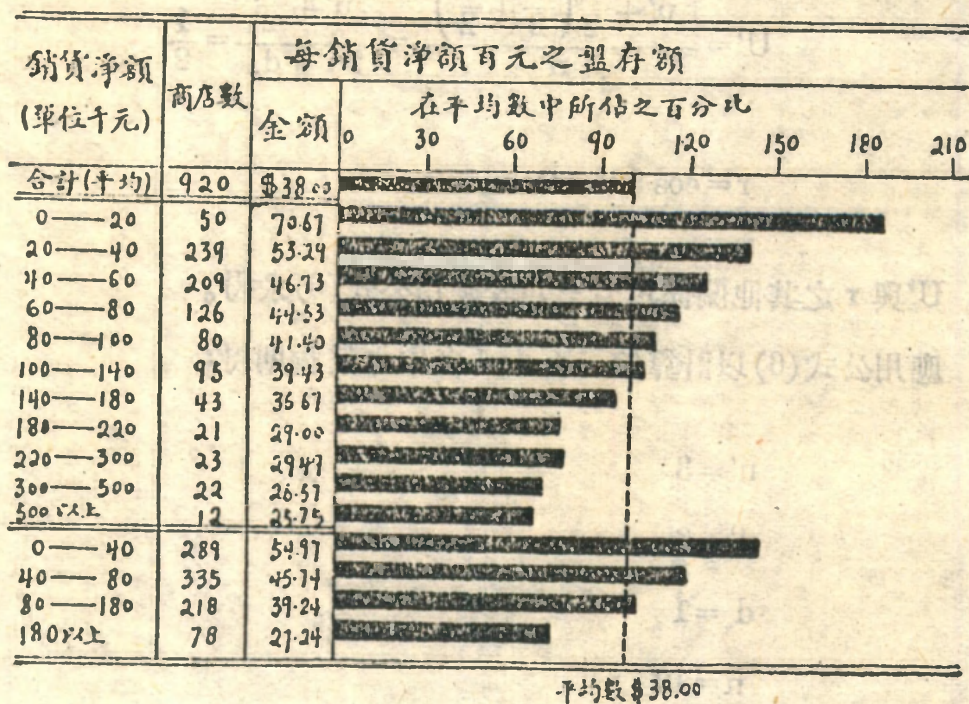 每銷貨淨額百元之盤存額
銷貨淨額
(單位千元)
商店數
金額
在平均數中所佔之百分比
0 30 60 90 120 150 180 210
合計(平均) 920 $38.00
0——20 50 70.67
20——40 239 53.29
40——60 209 46.73
60——80 126 44.53
80——100 80 41.40
100——140 95 39.43
140——180 43 35.67
180——220 21 29.00
220——300 23 29.47
300——500 22 26.57
500以上 12 25.75
0——40 289 54.97
40——80 335 45.74
80——180 218 39.24
180以上 78 27.24
平均數$38.00